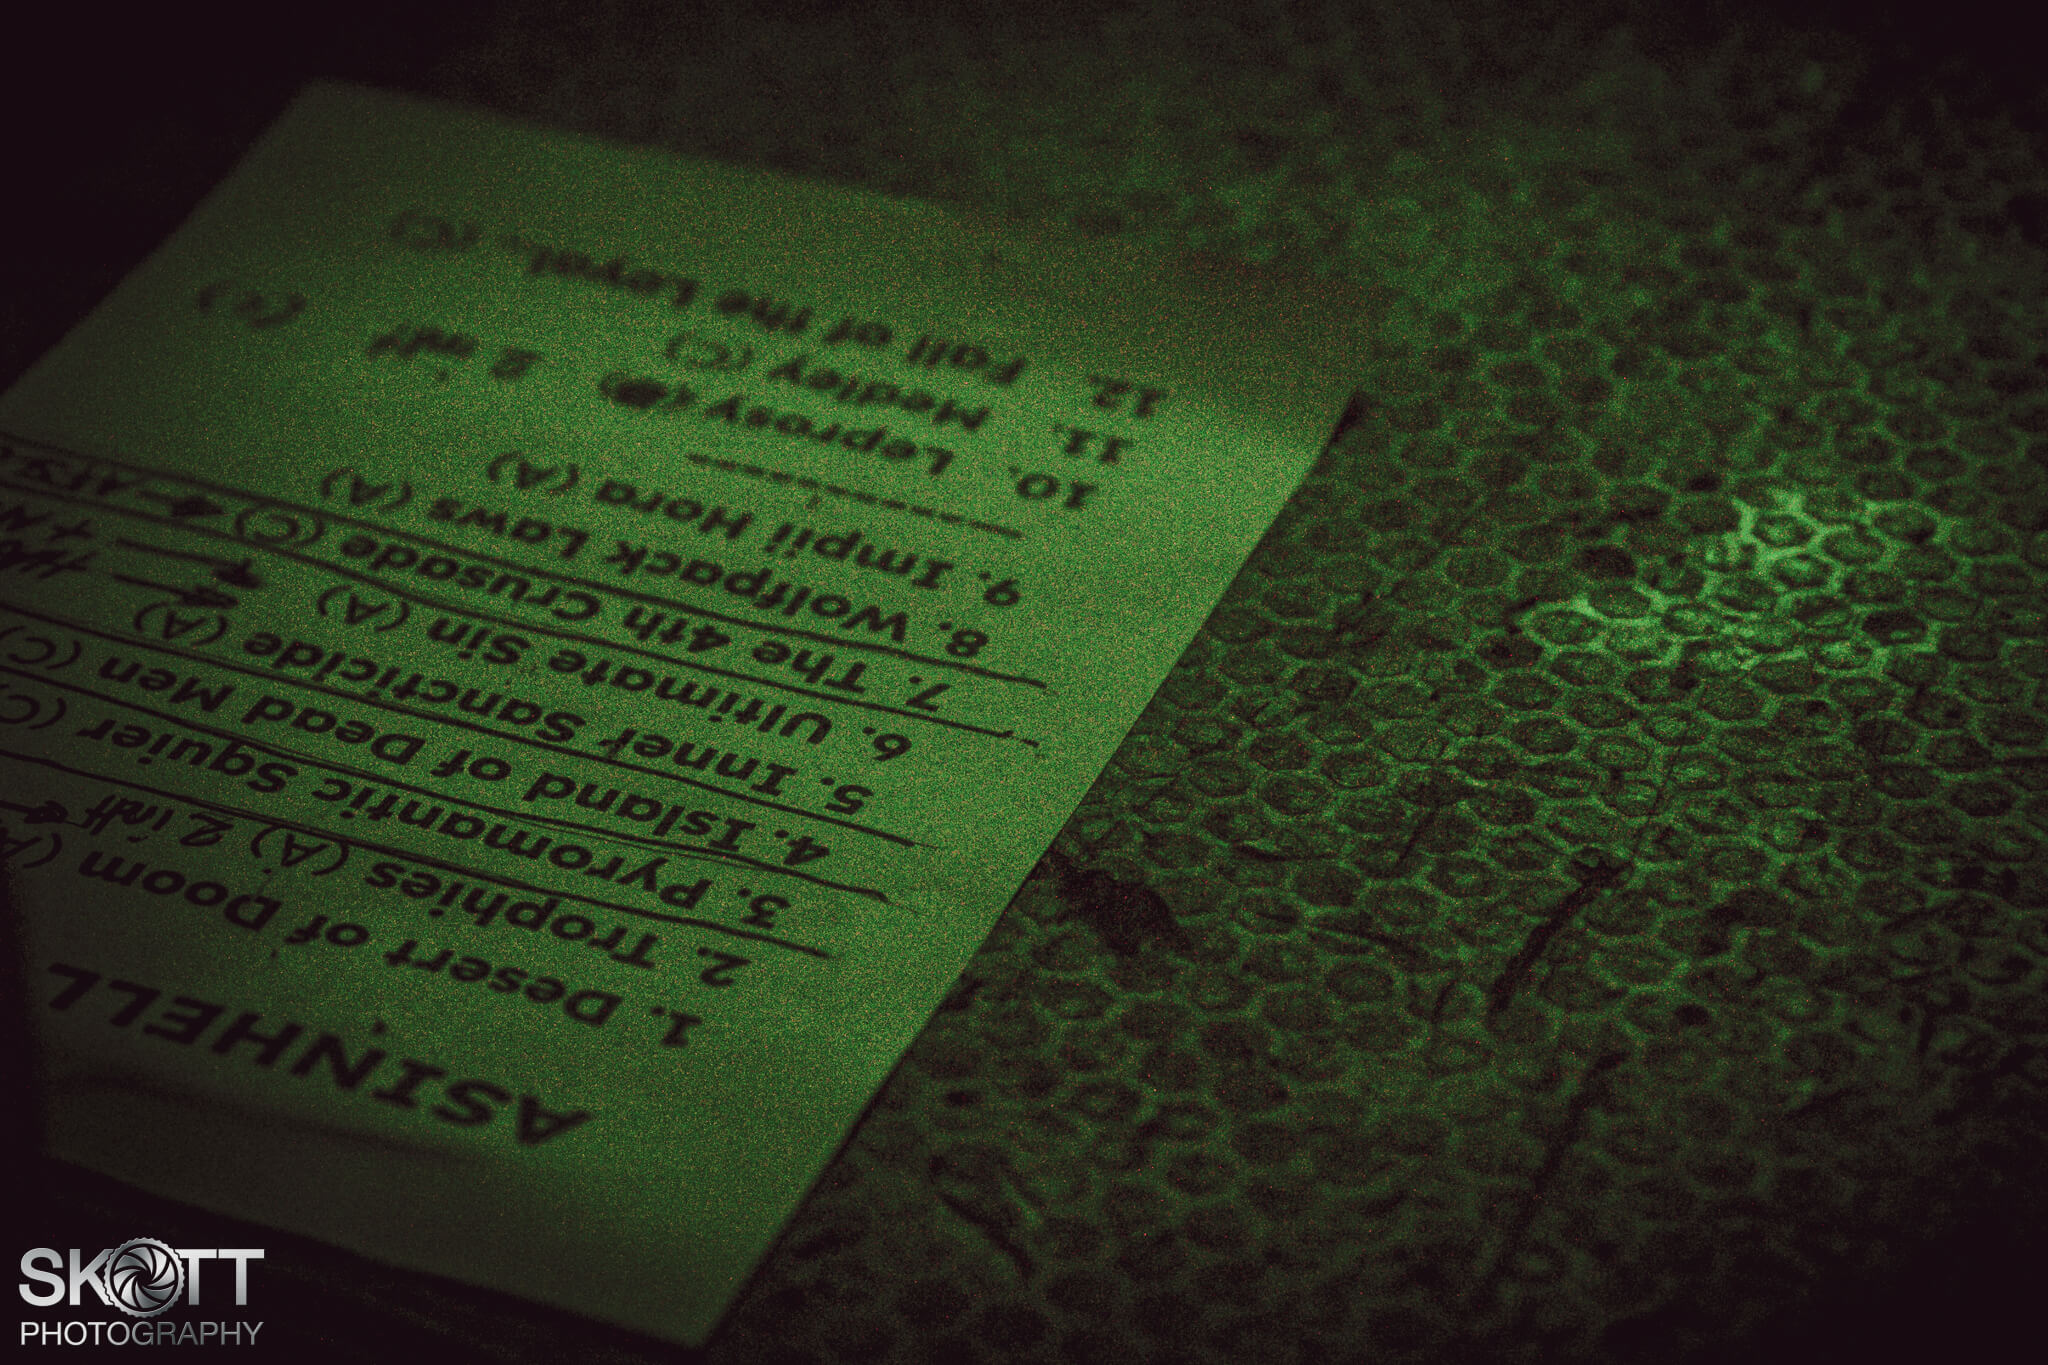 ASINHELL
1. Desert of Doom
2. Trophies (A) 2
3. Pyromantic Squier (C)
4. Island of Dead Men (C)
5. Inner Sancticide (A)
6. Ultimate Sin (A)
7. The 4th Crusade (C)
8. Wolfpack Laws (A)
9. Impii Hora (A)
----------
10. Leprosy
11. Medley (C)
12. Fall of the Loyal (C)
SKOTT
PHOTOGRAPHY